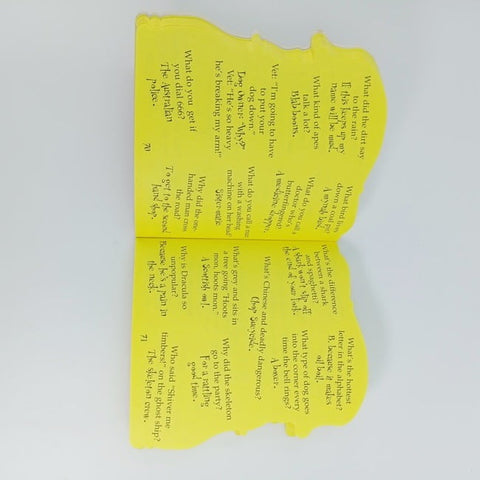 What did the dirt say
to the rain?
If this keeps up my
name will be mud.
What kind of apes
talk a lot?
Blab boons.
Vet: "I'm going to have
to put your
dog down."
Dog Owner: "Why?"
Vet: "He's so heavy
he's breaking my arm!"
What do you get if
you dial 666?
The Australian
police.
What bird lives
down a coal pit?
A mynah bird.
What do you call a
doctor who's
butterfingers?
A medicine dropper.
What do you call a
with a washing
machine on her head?
Why did the one-
handed man cross
the road?
To get to the second
hand shop.
70
What's the difference
between a shark
and spaghetti?
A shark won't slip off
the end of your fork.
What's Chinese and deadly dangerous?
Chop Sueycide.
What's grey and sits in
a tree going "Hoots
mon, hoots mon."
A Scottish owl.
Why is Dracula so
unpopular?
Because he's a pain in
the neck.
What's the hottest
letter in the alphabet?
B, because it makes
oil boil.
What type of dog goes
into the corner every
time the bell rings?
A boxer.
Why did the skeleton
go to the party?
For a rattling
good time.
Who said "Shiver me
timbers!" on the ghost ship?
The skeleton crew.
71